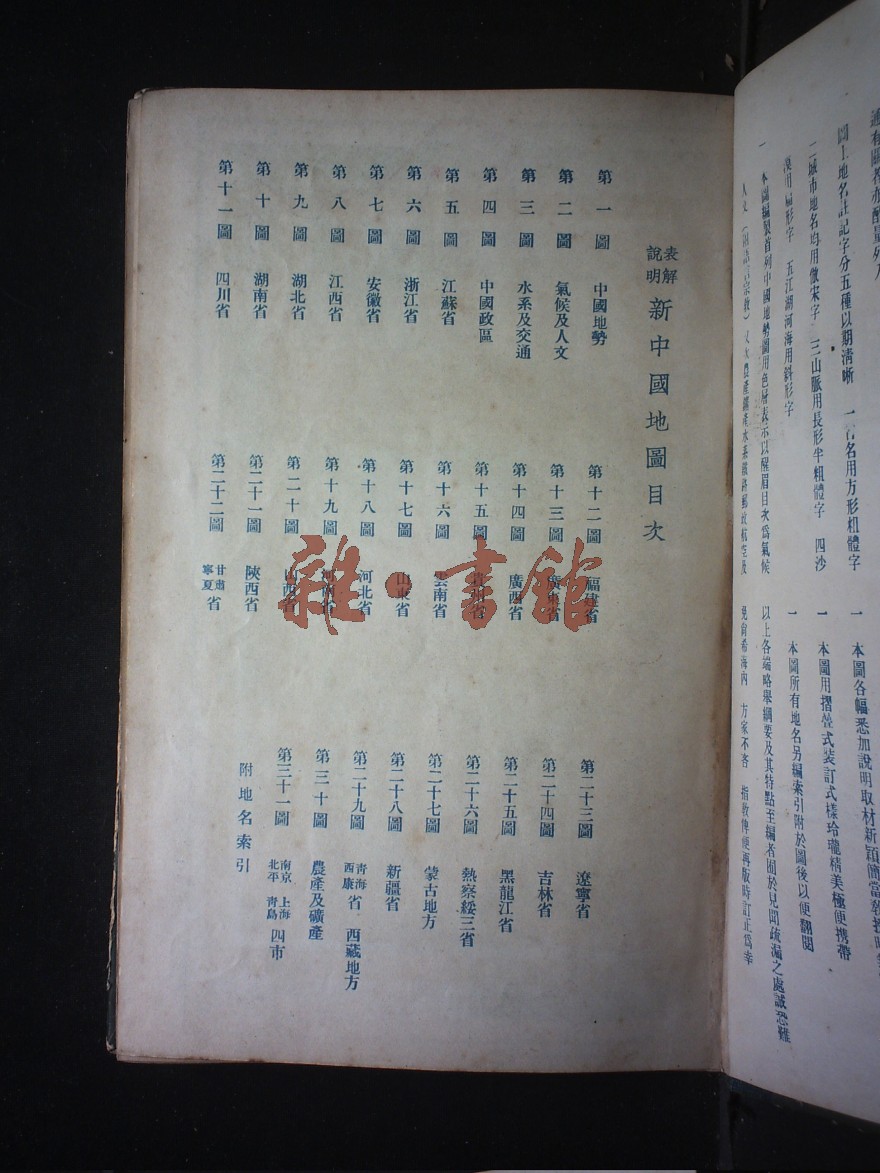 圖上地名註記字分五種以期清晰
二城市地名均用倣宋字 三山脈用長形半粗體字 四沙
漠用扁形字 五江湖河海用斜形字
一 本圖編製首列中國地勢圖用色層表示以醒眉目次為氣候
一 本圖各幅悉加說明取材新穎簡當
一 本圖用摺叠式裝訂式樣玲瓏精美極便携帶
一 本圖所有地名另編索引附於圖後以便翻閱
以上各端略舉綱要及其特點至編者囿於見聞疏漏之處誠恐難
免尚希海內 方家不吝 指教俾便再版時訂正為幸
表解
說明
新中國地圖目次
第一圖 中國地勢
第二圖 氣候及人文
第三圖 水系及交通
第四圖 中國政區
第五圖 江蘇省
第六圖 浙江省
第七圖 安徽省
第八圖 江西省
第九圖 湖北省
第十圖 湖南省
第十一圖 四川省
第十二圖 福建省
第十三圖 廣東省
第十四圖 廣西省
第十五圖 貴州省
第十六圖 雲南省
第十七圖 山東省
第十八圖 河北省
第十九圖 河南省
第二十圖 山西省
第二十一圖 陝西省
第二十二圖 甘肅寧夏省
第二十三圖 遼寧省
第二十四圖 吉林省
第二十五圖 黑龍江省
第二十六圖 熱察綏三省
第二十七圖 蒙古地方
第二十八圖 新疆省
第二十九圖 青海西康省．西藏地方
第三十圖 農產及礦產
第三十一圖 南京 上海 北平 青島 四市
附地名索引
雜·書館